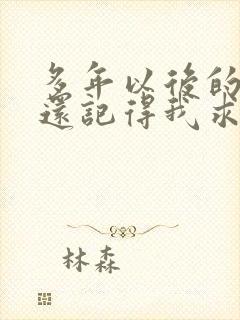 多年以後的
還記得我求
林森